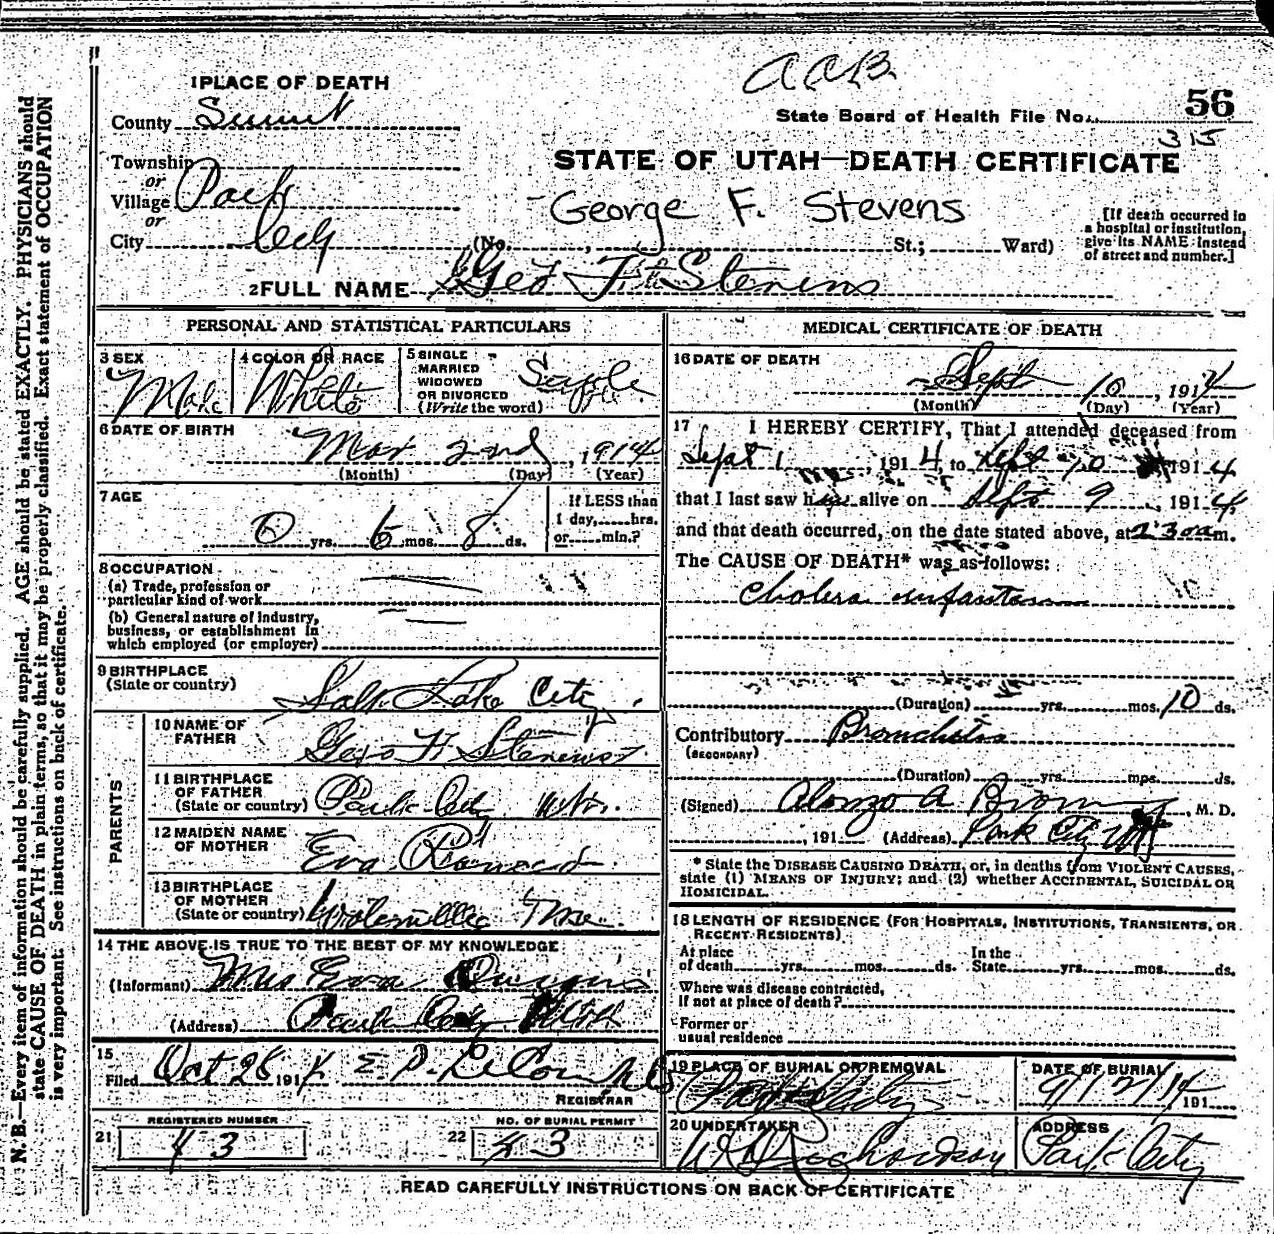 N. B.—Every item of information should be carefully supplied. AGE should be stated EXACTLY. PHYSICIANS should
state CAUSE OF DEATH in plain terms, so that it may be properly classified. Exact statement of OCCUPATION
is very important. See instructions on back of certificate.
AAB
1 PLACE OF DEATH
County Summit
State Board of Health File No. 56
315
STATE OF UTAH—DEATH CERTIFICATE
Township
or
Village Park
or
City City
George F. Stevens
(No. , St.; Ward)
[If death occurred in
a hospital or institution,
give its NAME instead
of street and number.]
2 FULL NAME Geo F. Stevens
PERSONAL AND STATISTICAL PARTICULARS
3 SEX Male
4 COLOR OR RACE White
5 SINGLE
MARRIED
WIDOWED
OR DIVORCED
(Write the word) Single
6 DATE OF BIRTH
Mar 2nd, 1914
(Month) (Day) (Year)
7 AGE
0 yrs. 6 mos. 8 ds.
If LESS than
1 day, hrs.
or min.?
8 OCCUPATION
(a) Trade, profession or
particular kind of work
(b) General nature of industry,
business, or establishment in
which employed (or employer)
9 BIRTHPLACE
(State or country) Salt Lake City.
PARENTS
10 NAME OF
FATHER Geo F Stevens
11 BIRTHPLACE
OF FATHER
(State or country) Park City
12 MAIDEN NAME
OF MOTHER Eva
13 BIRTHPLACE
OF MOTHER
(State or country)
14 THE ABOVE IS TRUE TO THE BEST OF MY KNOWLEDGE
(Informant) Mrs Eva
(Address) Park City Utah
15
Filed Oct 28 1914 E. P. LeCom
REGISTRAR
REGISTERED NUMBER
21 43
NO. OF BURIAL PERMIT
22 43
MEDICAL CERTIFICATE OF DEATH
16 DATE OF DEATH
Sept 10, 1914
(Month) (Day) (Year)
17 I HEREBY CERTIFY, That I attended deceased from
Sept 1, 1914, to Sept 10 1914
that I last saw h alive on Sept 9, 1914
and that death occurred, on the date stated above, at 230 a m.
The CAUSE OF DEATH* was as follows:
Cholera infantum
(Duration) yrs. mos. 10 ds.
Contributory Bronchitis
(SECONDARY)
(Duration) yrs. mos. ds.
(Signed) Alonzo A Brown, M. D.
, 191 (Address) Park City Ut
* State the DISEASE CAUSING DEATH, or, in deaths from VIOLENT CAUSES,
state (1) MEANS OF INJURY; and (2) whether ACCIDENTAL, SUICIDAL OR
HOMICIDAL.
18 LENGTH OF RESIDENCE (FOR HOSPITALS, INSTITUTIONS, TRANSIENTS, OR
RECENT RESIDENTS)
At place
of death yrs. mos. ds.
In the
State yrs. mos. ds.
Where was disease contracted,
if not at place of death?
Former or
usual residence
19 PLACE OF BURIAL OR REMOVAL
Park City
DATE OF BURIAL
9/12/14 191
20 UNDERTAKER
Richardson
ADDRESS
Park City
READ CAREFULLY INSTRUCTIONS ON BACK OF CERTIFICATE